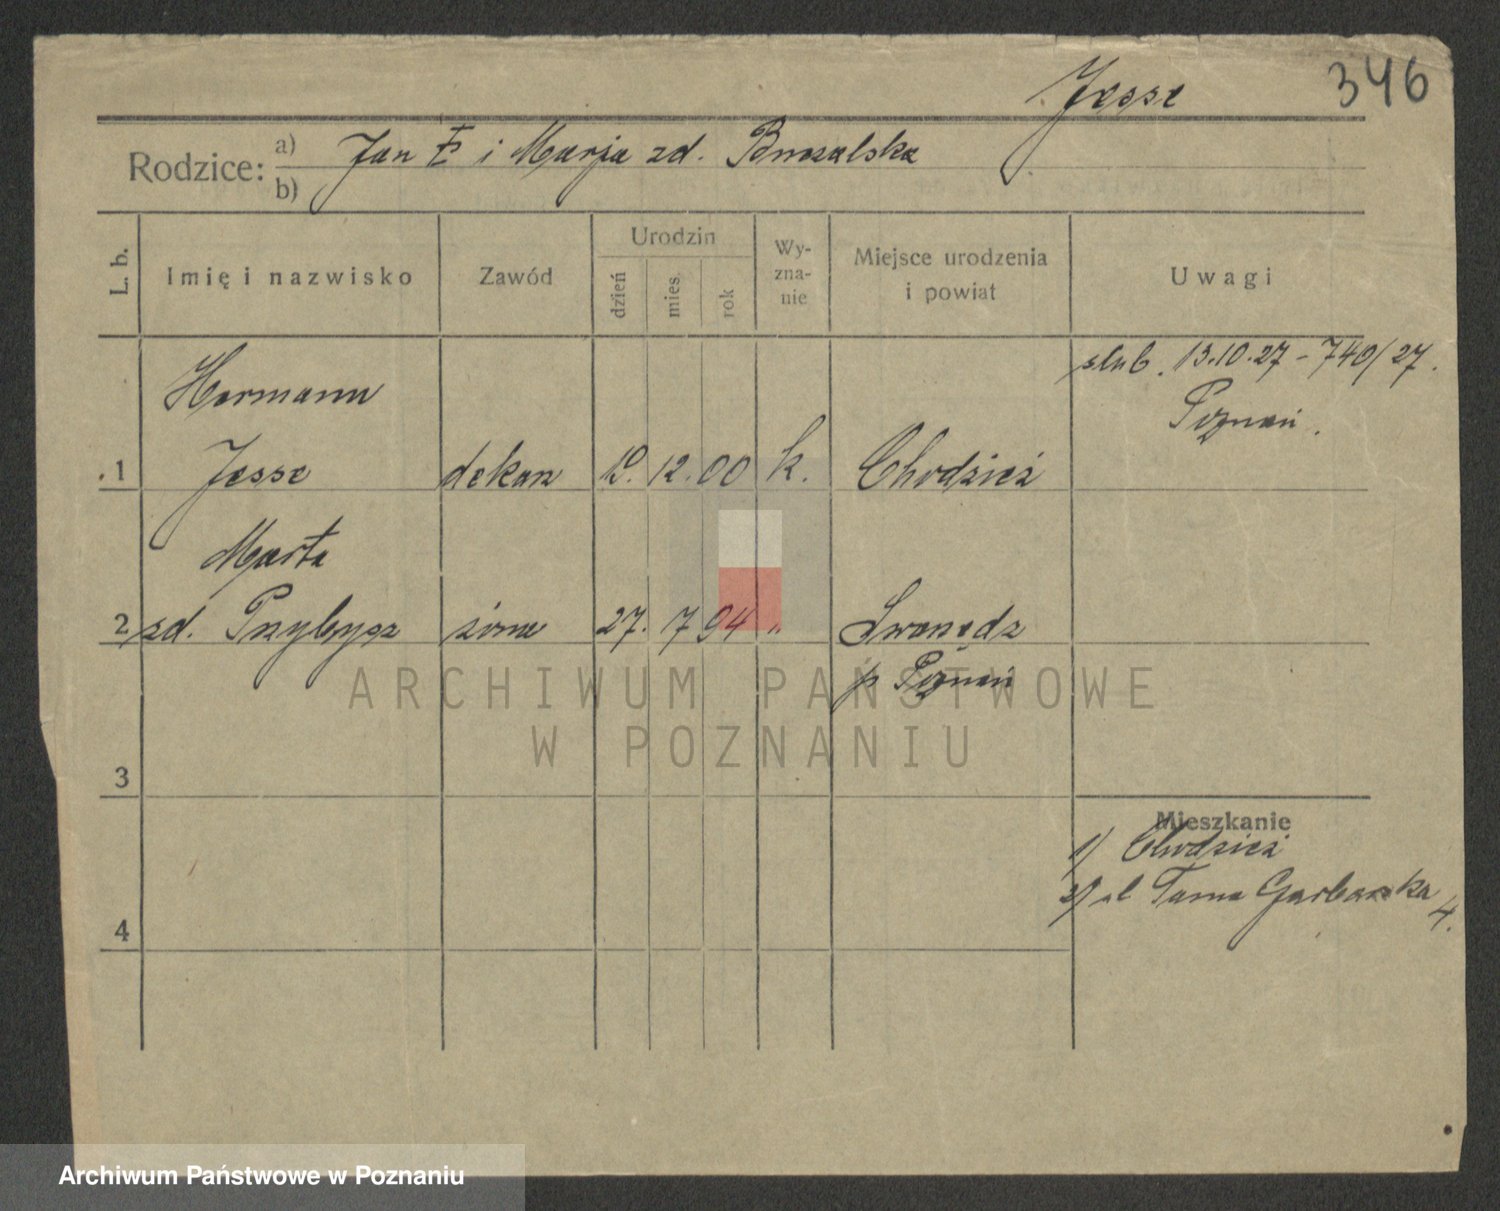 Jesse 346
Rodzice: a) Jan i Marja zd.
b)
L. b. Imię i nazwisko Zawód Urodzin dzień mies. rok Wy-
zna-
nie Miejsce urodzenia
i powiat Uwagi
ślub. 13.10.27 - 740/27.
Poznań.
Hermann
1 Jesse dekarz 19. 12. 00 k. Chodzież
Marta
2 zd. Przybysz żona 27. 7 94 " Swarzędz
p. Poznań
3
4
Mieszkanie
1) Chodzież
2) ul Tama Garbarska 4.
ARCHIWUM PAŃSTWOWE
W POZNANIU
Archiwum Państwowe w Poznaniu